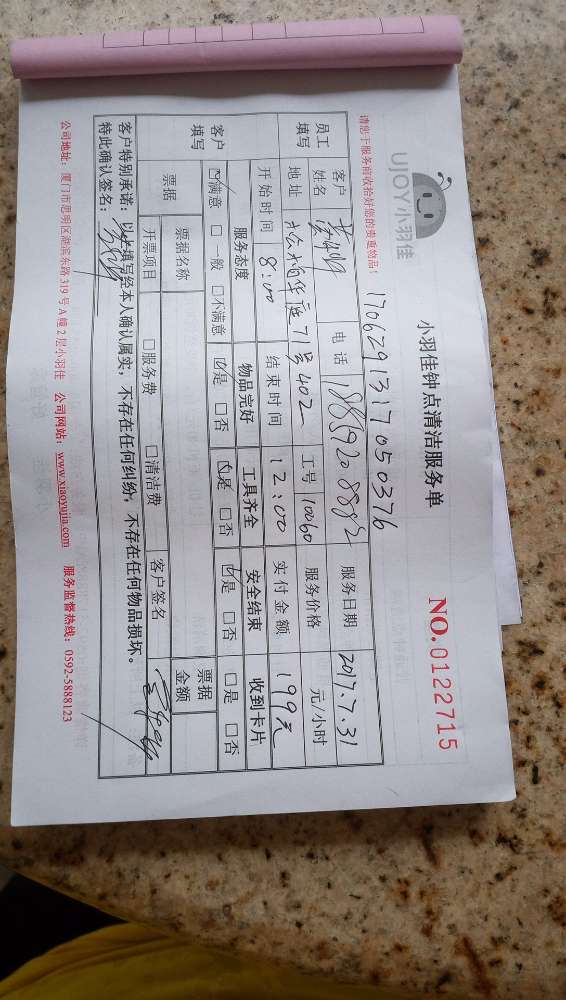 UJOY小羽佳
小羽佳钟点清洁服务单
NO.0122715
请您于服务前收拾好您的贵重物品!
1706291317050376
员工填写 客户姓名 电话 18859208882 服务日期 2017.7.31
地址 松柏华庭71号402 工号 10060 服务价格 元/小时
开始时间 8:00 结束时间 12:00 实付金额 199元
客户填写 服务态度 物品完好 工具齐全 安全结束 收到卡片
☑满意 □一般 □不满意 ☑是 □否 ☑是 □否 ☑是 □否 □是 □否
票据 票据名称 票据金额
开票项目 □服务费 □清洁费 客户签名
客户特别承诺：以上填写经本人确认属实，不存在任何纠纷，不存在任何物品损坏。
特此确认签名：
公司地址：厦门市思明区湖滨东路319号A幢2层小羽佳 公司网站：www.xiaoyujia.com 服务监督热线：0592-5888123